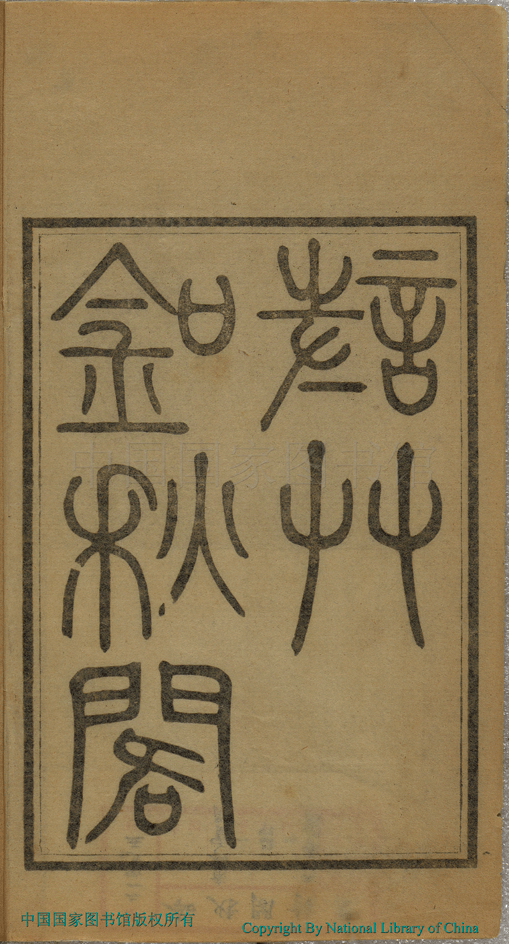 唫秋閣
詩艸
中国国家图书馆
中国国家图书馆版权所有
Copyright By National Library of China